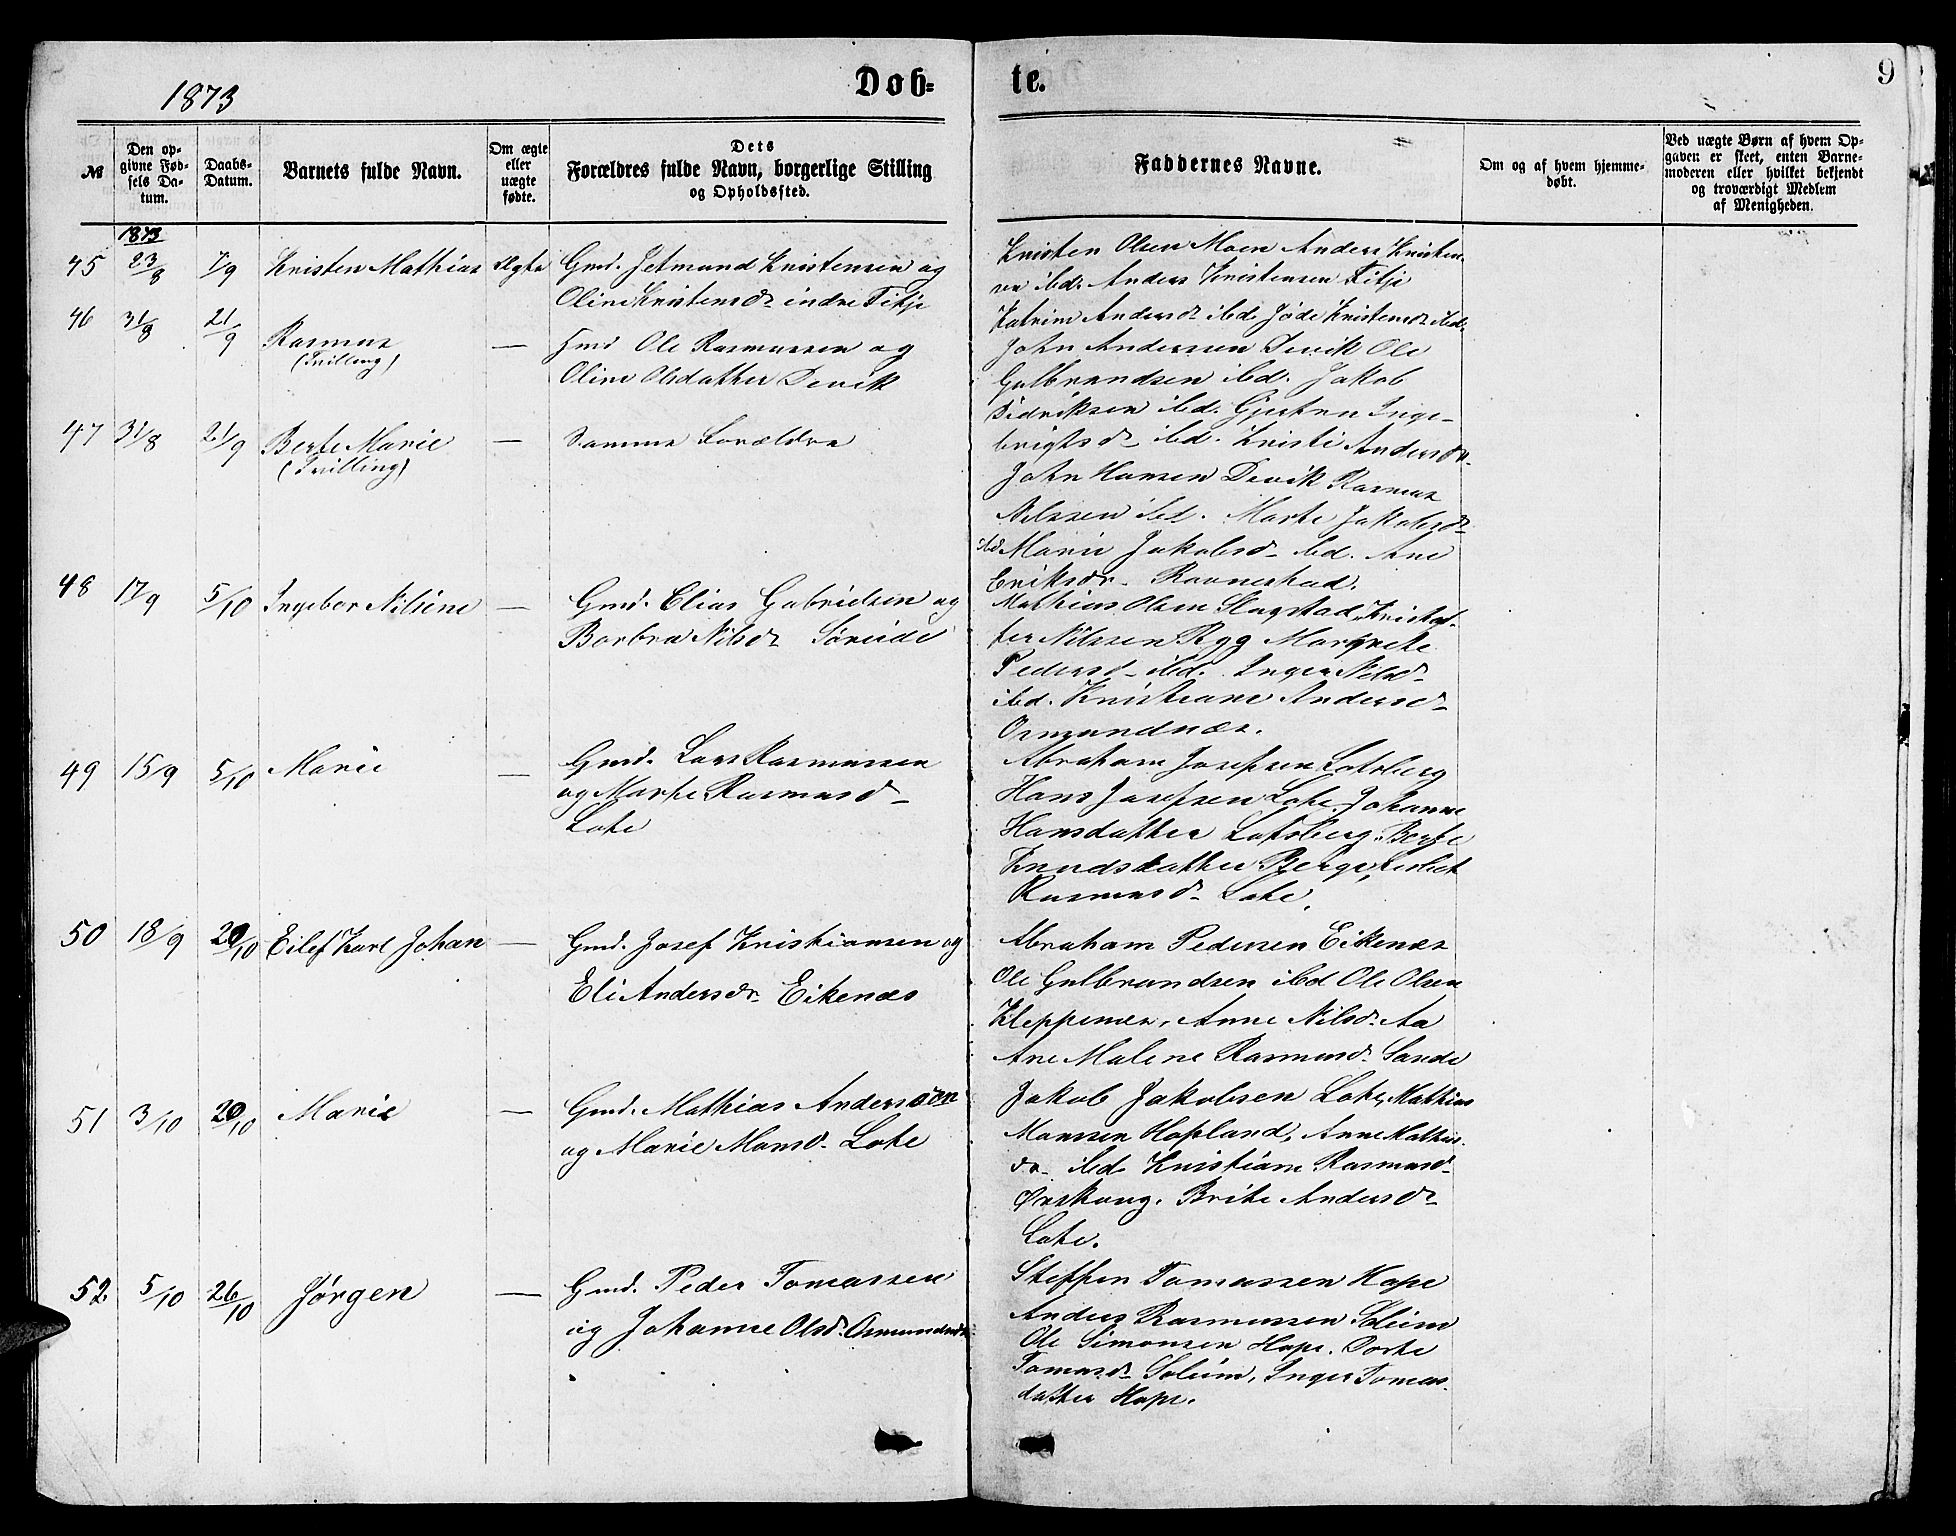 1873
Døb=
te.
9
№
Den op-
givne Fød-
sels Da-
tum.
Daabs-
Datum.
Barnets fulde Navn.
Om ægte
eller
uægte
fødte.
Dets
Forældres fulde Navn, borgerlige Stilling
og Opholdssted.
Faddernes Navne.
Om og af hvem hjemme-
døbt.
Ved uægte Børn af hvem Op-
gaven er skeet, enten Barne-
moderen eller hvilket bekjendt
og troværdigt Medlem
af Menigheden.
1873
45 23/8 7/9 Kristen Mathias Ægte Gmd. Jetmund Kristensen og
Oline Kristensdr indre Fitje
Kristen Olsen Moen Anders Kristen-
sen ibd. Anders Kristensen Fitje
Katrine Andersdr ibd. Jøde Kristensdr ibd.
46 31/8 21/9 Rasmus
(Tvilling)
— Hmd Ole Rasmussen og
Oline Olsdatter Devik
John Anderssen Devik Ole
Gulbrandsen ibd. Jakob
Didriksen ibd. Gjertru Inge-
brigtsdr ibd. Kristi Andersdr.
47 31/8 21/9 Berte Marie
(Tvilling)
— Samme Forældre
John Hansen Devik Rasmus
Nilssen ibd. Marte Jakobsdr
ibd Marie Jakobsdr ibd. Ane
Eriksdr. Ravnestad.
48 17/9 5/10 Ingebor Nilsine — Gmd. Elias Gabrielsen og
Barbra Nilsdr Søreide
Mathias Olsen Slagstad, Kristof-
fer Nilssen Rygg Margrete
Pedersdr ibd. Inger Nilsdr
ibd. Kristiane Andersdr
Osmundnæs.
49 15/9 5/10 Marie — Gmd. Lars Rasmussen
og Marte Rasmusdr
Lote
Abraham Josefsen Lotsberg
Hans Josefsen Lote, Johanne
Hansdatter Lotsberg, Berte
Knudsdatter Berge,
Rasmusdr Lote.
50 18/9 20/10 Eilef Karl Johan — Gmd. Josef Kristiansen og
Eli Andersdr. Eikenæs
Abraham Pedersen Eikenæs
Ole Gulbrandsen ibd Ole Olsen
Kleppenes, Anne Nilsdr. Aa
Ane Malene Rasmusdr. Sande
51 3/10 20/10 Marie — Gmd. Mathias Anderssen
og Marie Monsdr. Lote
Jakob Jakobsen Lote, Mathias
Monssen Hopland, Anne Mathias-
dr. ibd. Kristiane Rasmusdr
Ørskoug. Brite Andersdr
Lote.
52 5/10 26/10 Jørgen — Gmd. Peder Tomassen
og Johanne Olsdr. Osmundnæs
Steffen Tomassen Hope
Anders Rasmussen Soleim
Ole Simonsen Hope. Dorte
Tomasdr Soleim, Inger Tomas-
datter Hope.